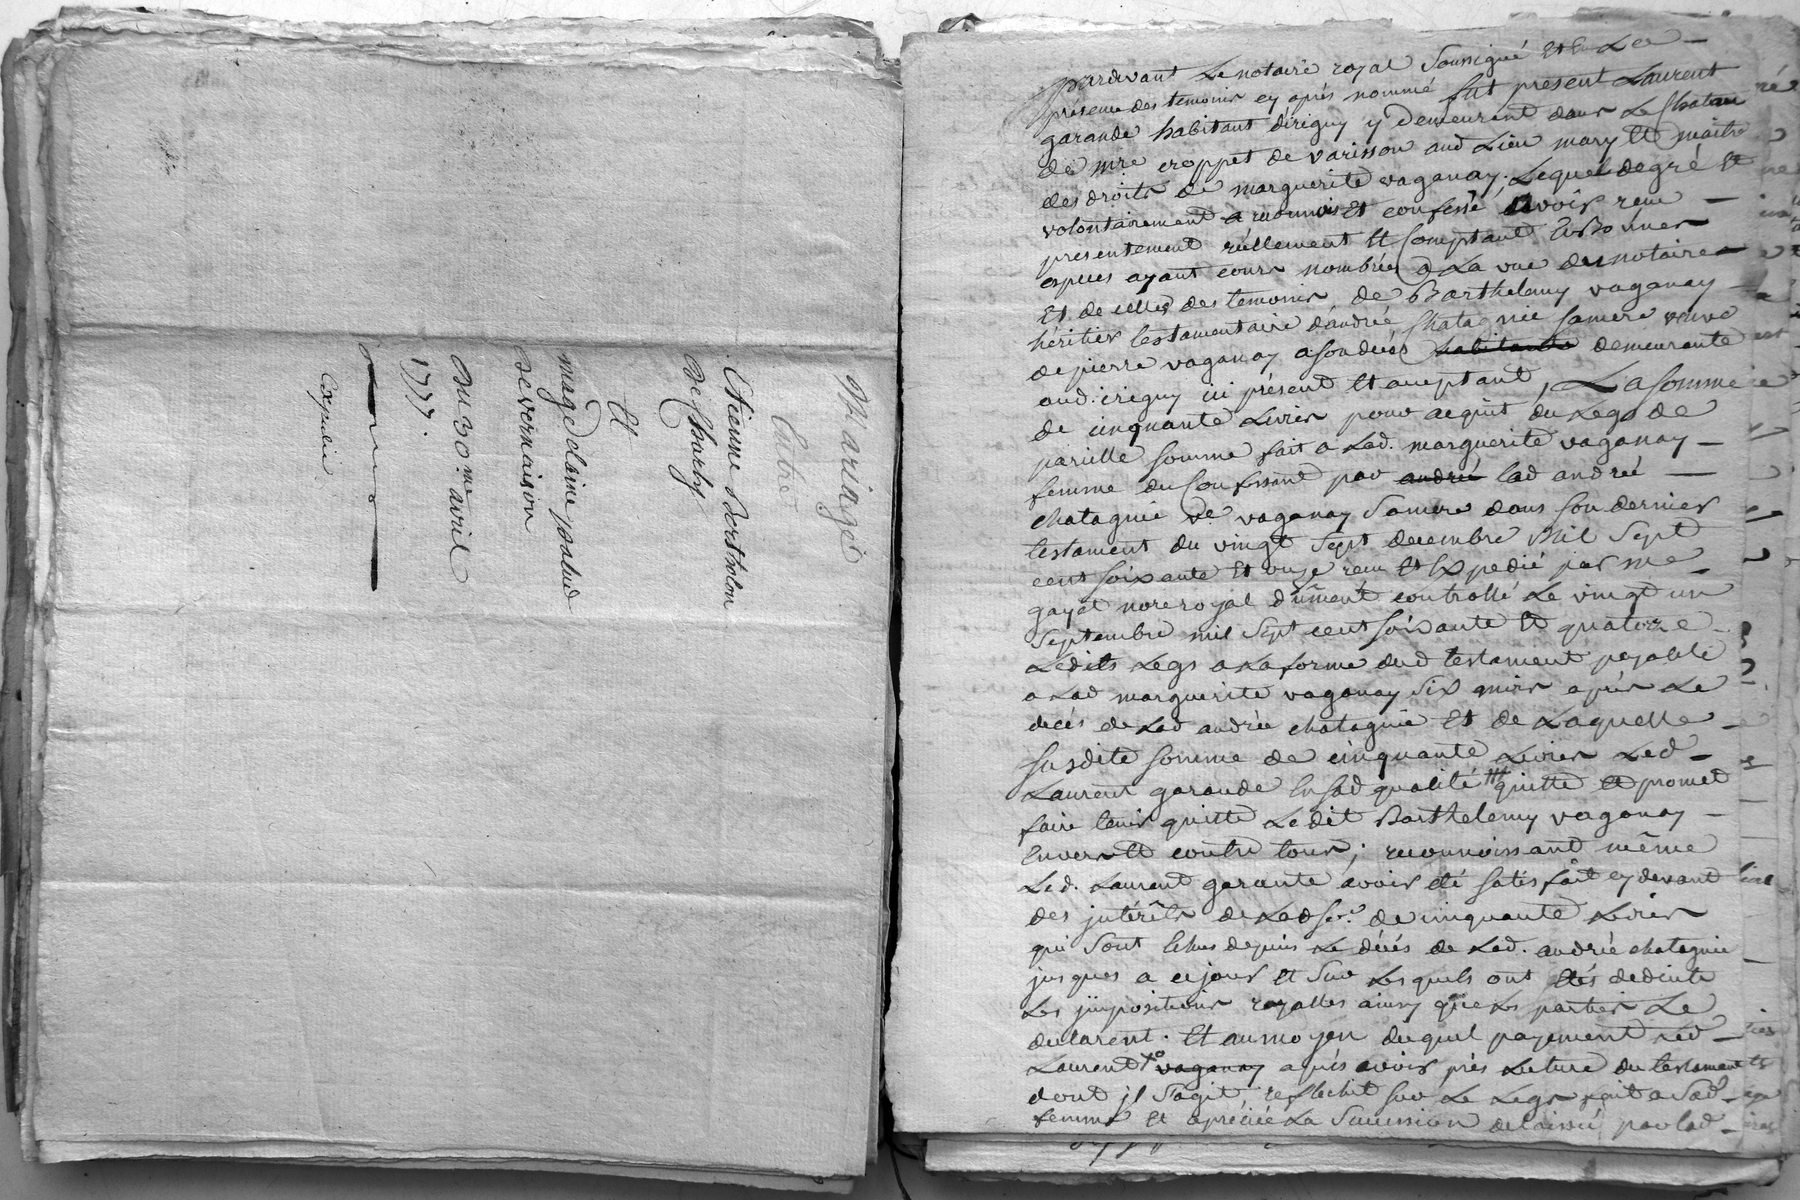 Mariage
Entre
Etienne Bertholon
de Charly
Et
magdelaine
de vernaison
du 30.me avril
1777.
Expedié
Pardevant Le notaire royal Soussigné Et En La
présence des temoins cy après nommé fut present Laurent
garande habitant dirigny y Demeurant dans Le Chateau
de mre croppet de varisson aud Lieu mary Et maitre
des droits de marguerite vaganay. Lequel de gré Et
volontairement a reconnu Et confessé avoir reçu
presentement réellement Et Comptant En Bonnes
especes ayant cours nombrées a La vue des notaires
Et de celles des temoins, de Barthelemy vaganay
héritier testamentaire d'andrée Chatagnie sa mere veuve
de pierre vaganay a son decés habitante demeurante
aud. irigny ici présent Et acceptant, La Somme
de cinquante Livres pour acquit du Legs de
pareille somme fait a Lad. marguerite vaganay
femme du Confessant par andrée lad andrée
chatagnie ve. vaganay Sa mere dans son dernier
testament du vingt Sept decembre Mil Sept
cent soixante Et onze reçu Et Expedié par me
gayet nore royal dûment controllé Le vingt un
Septembre mil Sept cent soixante Et quatorze
Ledits Legs a La forme dud testament payable
a Lad marguerite vaganay Six mois après Le
decés de Lad andrée chatagnie Et de Laquelle
susdite somme de cinquante Livres Led
Laurent garande En sad qualité quitte Et promet
faire tenir quitte Ledit Barthelemy vaganay
Envers Et contre tous; reconnoissant même
Led. Laurent garante avoir eté satisfait cy devant
des jntérêts de Lad se. de cinquante Livres
qui Sont Echus depuis Le décés de Lad. andrée chatagnie
jusques a ce jour Et sur Lesquels ont étés deduite
Les jmpositions royalles ainsy que Les parties Le
declarent. Et au moyen duquel payement Led
Laurent vaganay après avoir pris Lecture du testament
dont jl S'agit, reflechit sur Le Legs fait a Sad
femme Et apréciée La Succession delaissé par lad